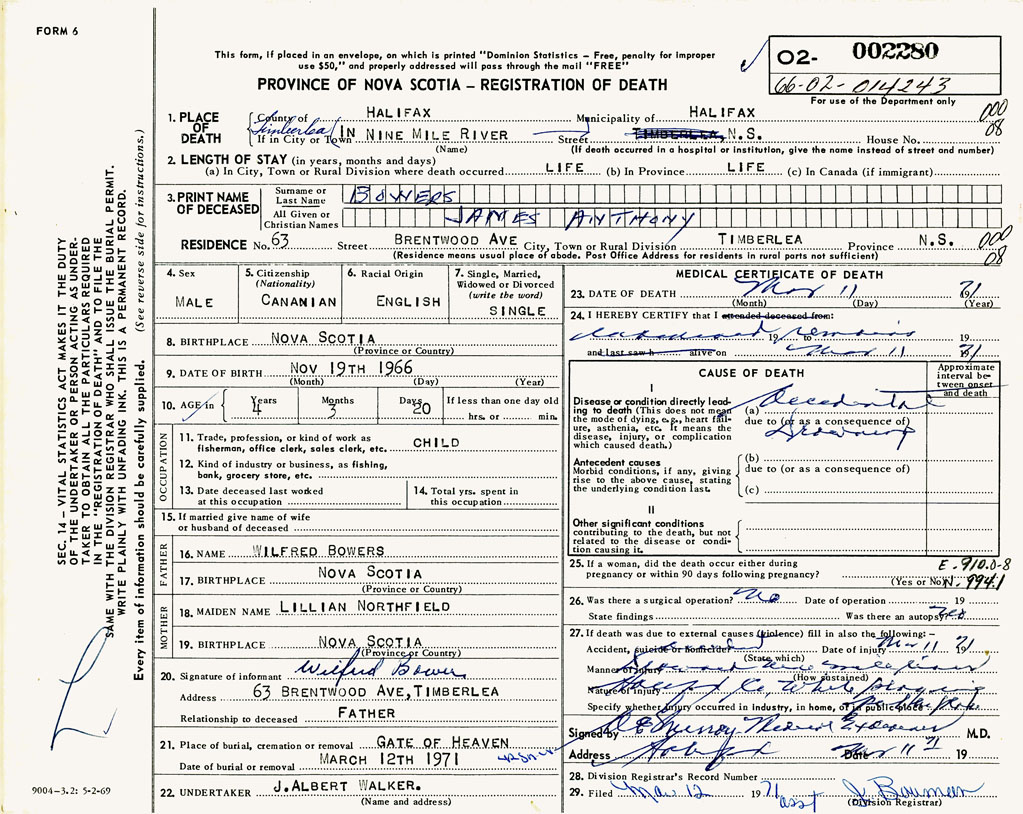 FORM 6
This form, if placed in an envelope, on which is printed "Dominion Statistics – Free, penalty for improper
use $50," and properly addressed will pass through the mail "FREE"
PROVINCE OF NOVA SCOTIA – REGISTRATION OF DEATH
02- 002280
66-02-014243
For use of the Department only
1. PLACE OF DEATH
County of HALIFAX Municipality of HALIFAX 000
Timberlea
If in City or Town IN NINE MILE RIVER Street TIMBERLEA, N.S. House No. 08
(Name) (If death occurred in a hospital or institution, give the name instead of street and number)
2. LENGTH OF STAY (in years, months and days)
(a) In City, Town or Rural Division where death occurred LIFE (b) In Province LIFE (c) In Canada (if immigrant)
3. PRINT NAME OF DECEASED
Surname or Last Name BOWERS
All Given or Christian Names JAMES ANTHONY
RESIDENCE No. 63 Street BRENTWOOD AVE City, Town or Rural Division TIMBERLEA Province N.S. 000
08
(Residence means usual place of abode. Post Office Address for residents in rural parts not sufficient)
4. Sex
MALE
5. Citizenship
(Nationality)
CANANIAN
6. Racial Origin
ENGLISH
7. Single, Married,
Widowed or Divorced
(write the word)
SINGLE
8. BIRTHPLACE NOVA SCOTIA
(Province or Country)
9. DATE OF BIRTH NOV 19TH 1966
(Month) (Day) (Year)
10. AGE in Years 4 Months 3 Days 20 If less than one day old
hrs. or min.
OCCUPATION
11. Trade, profession, or kind of work as
fisherman, office clerk, sales clerk, etc. CHILD
12. Kind of industry or business, as fishing,
bank, grocery store, etc.
13. Date deceased last worked
at this occupation
14. Total yrs. spent in
this occupation
15. If married give name of wife
or husband of deceased
FATHER
16. NAME WILFRED BOWERS
17. BIRTHPLACE NOVA SCOTIA
(Province or Country)
MOTHER
18. MAIDEN NAME LILLIAN NORTHFIELD
19. BIRTHPLACE NOVA SCOTIA
(Province or Country)
20. Signature of informant Wilfred Bowers
Address 63 BRENTWOOD AVE, TIMBERLEA
Relationship to deceased FATHER
21. Place of burial, cremation or removal GATE OF HEAVEN
Date of burial or removal MARCH 12TH 1971
22. UNDERTAKER J. ALBERT WALKER.
(Name and address)
MEDICAL CERTIFICATE OF DEATH
23. DATE OF DEATH Mar 11 71
(Month) (Day) (Year)
24. I HEREBY CERTIFY that I attended deceased from:
remains 19 to 19
and last saw h alive on Mar 11 1971
CAUSE OF DEATH
Approximate
interval be-
tween onset
and death
I
Disease or condition directly lead-
ing to death (This does not mean
the mode of dying, e.g., heart fail-
ure, asthenia, etc. It means the
disease, injury, or complication
which caused death.)
(a) Accidental
due to (or as a consequence of)
Drowning
Antecedent causes
Morbid conditions, if any, giving
rise to the above cause, stating
the underlying condition last.
(b)
due to (or as a consequence of)
(c)
II
Other significant conditions
contributing to the death, but not
related to the disease or condi-
tion causing it.
25. If a woman, did the death occur either during
pregnancy or within 90 days following pregnancy?
(Yes or No)
E. 910.0-8
N. 994.1
26. Was there a surgical operation? No Date of operation 19
State findings Was there an autopsy? Yes
27. If death was due to external causes (violence) fill in also the following: –
Accident, suicide or homicide Date of injury Mar 11 1971
(State which)
Manner of injury
(How sustained)
Nature of injury
Specify whether injury occurred in industry, in home, or in public place
Signed by M.D.
Address Halifax Date Mar 11 71 19
28. Division Registrar's Record Number
29. Filed Mar 12 1971 asst J. Bauman
(Division Registrar)
SEC. 14 – VITAL STATISTICS ACT MAKES IT THE DUTY
OF THE UNDERTAKER OR PERSON ACTING AS UNDER-
TAKER TO OBTAIN ALL THE PARTICULARS REQUIRED
IN THE "REGISTRATION OF DEATH" AND TO FILE THE
SAME WITH THE DIVISION REGISTRAR WHO SHALL ISSUE THE BURIAL PERMIT.
WRITE PLAINLY WITH UNFADING INK. THIS IS A PERMANENT RECORD.
Every item of information should be carefully supplied. (See reverse side for instructions.)
9004-3.2: 5-2-69